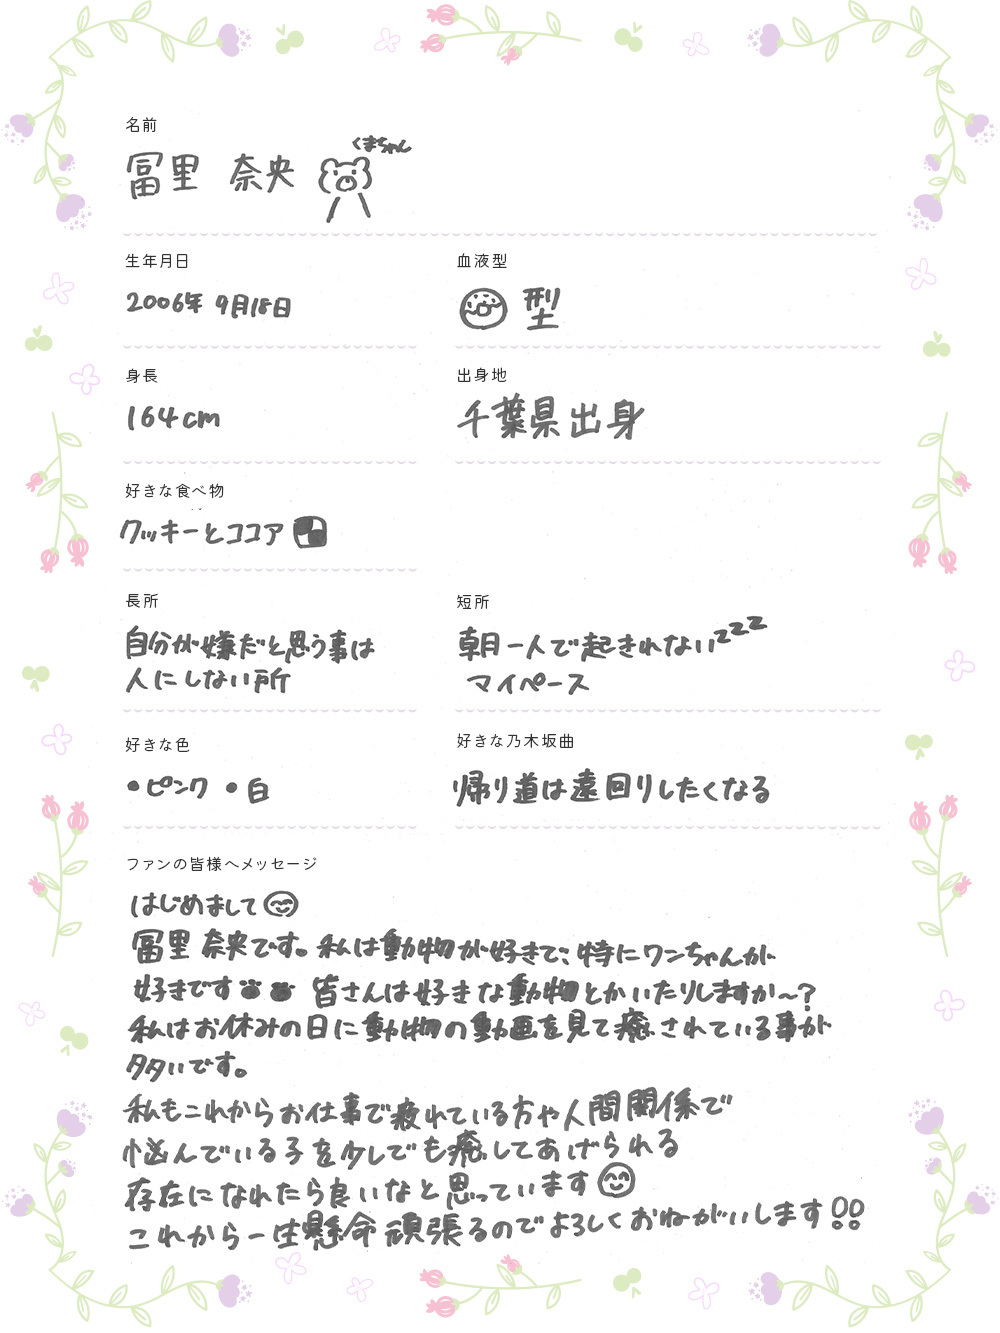 名前
くまちゃん
冨里 奈央
生年月日
血液型
2006年 9月18日
型
身長
出身地
164cm
千葉県出身
好きな食べ物
クッキーとココア
長所
短所
自分が嫌だと思う事は
人にしない所
朝一人で起きれないzzz
マイペース
好きな色
好きな乃木坂曲
・ピンク ・白
帰り道は遠回りしたくなる
ファンの皆様へメッセージ
はじめまして
冨里 奈央です。私は動物が好きで、特にワンちゃんが
好きです 皆さんは好きな動物とかいたりしますか〜?
私はお休みの日に動物の動画を見て癒されている事が
多いです。
私もこれからお仕事で疲れている方や人間関係で
悩んでいる子を少しでも癒してあげられる
存在になれたら良いなと思っています
これから一生懸命頑張るのでよろしくおねがいします!!